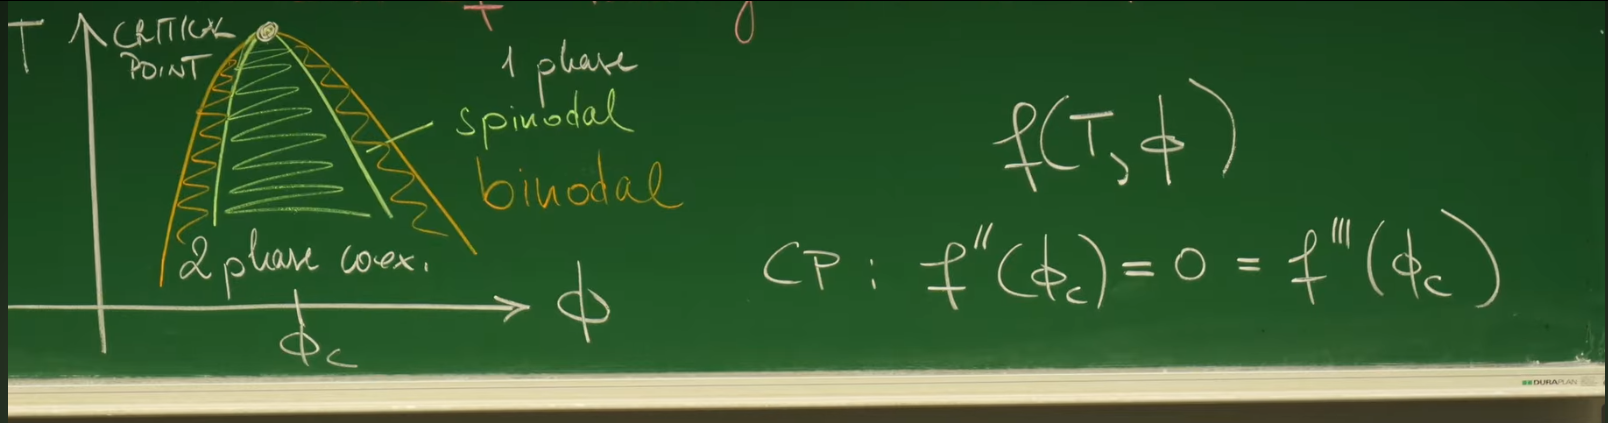 T
CRITICAL
POINT
1 phase
spinodal
binodal
2 phase coex.
ϕ
ϕc
f(T, ϕ)
CP: f''(ϕc) = 0 = f'''(ϕc)
DURAPLAN